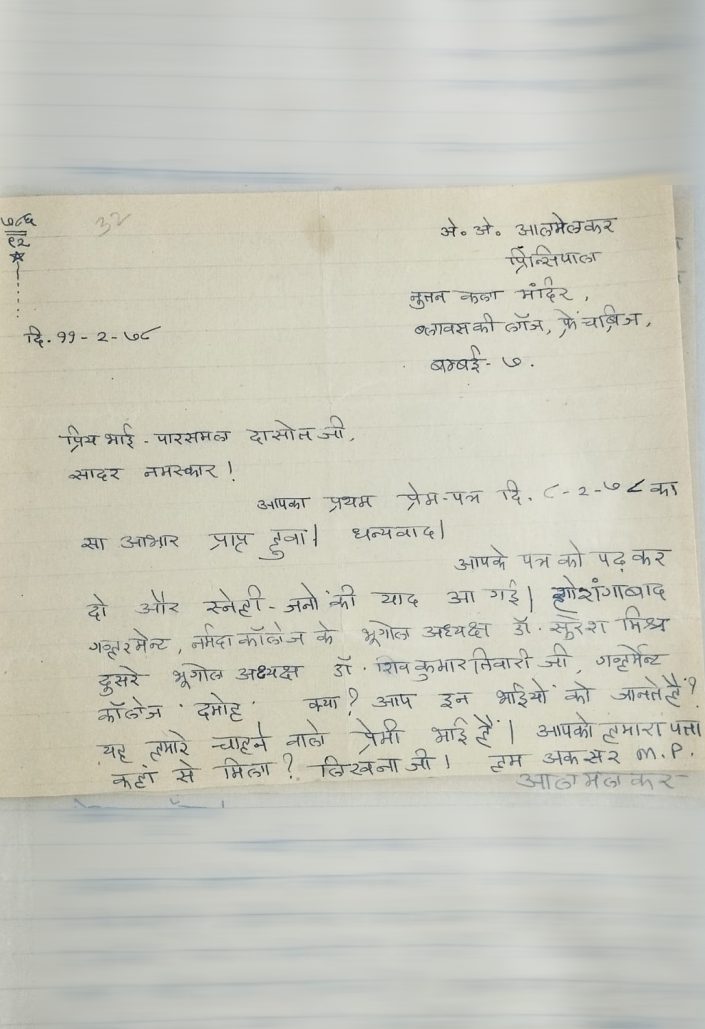 ७८६
९२
32
अे. अे. आलमेलकर
प्रिन्सिपाल
नुत्तन कला मंदिर,
ब्लावसकी लॉज, फ्रेंचब्रिज,
बम्बई - ७.
दि. ११ - २ - ७८
प्रिय भाई - पारसमल दासोत जी,
सादर नमस्कार !
आपका प्रथम प्रेम-पत्र दि. ८-२-७८ का
सा आभार प्राप्त हुवा। धन्यवाद।
आपके पत्र को पढ़ कर
दो और स्नेही-जनों की याद आ गई। होशंगाबाद
गव्हरमेन्ट, नर्मदा कॉलेज के भूगोल अध्यक्ष डॉ. सुरेश मिश्र
दुसरे भूगोल अध्यक्ष डॉ. शिवकुमार तिवारी जी, गव्हर्मेन्ट
कॉलेज 'दमोह' क्या? आप इन भाईयों को जानते हैं?
यह हमारे चाहने वाले प्रेमी भाई हैं। आपको हमारा पत्ता
कहां से मिला? लिखना जी। हम अकसर M.P.
आलमेलकर